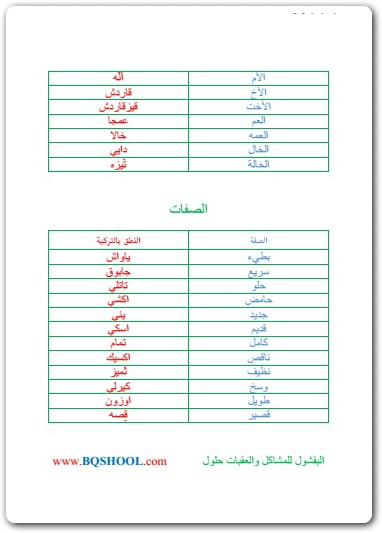 الأم أنّه
الأخ قاردش
الأخت قيزقاردش
العم عمجا
العمه خالا
الخال دايي
الخالة تّيزه
الصفات
الصفة النطق بالتركية
بطيء ياواش
سريع جابوق
حلو تاتلي
حامض اكشي
جديد يني
قديم اسكي
كامل تمام
ناقص اكسيك
نظيف تميز
وسخ كيرلي
طويل اوزون
قصير قصه
البقشول للمشاكل والعقبات حلول www.BQSHOOL.com